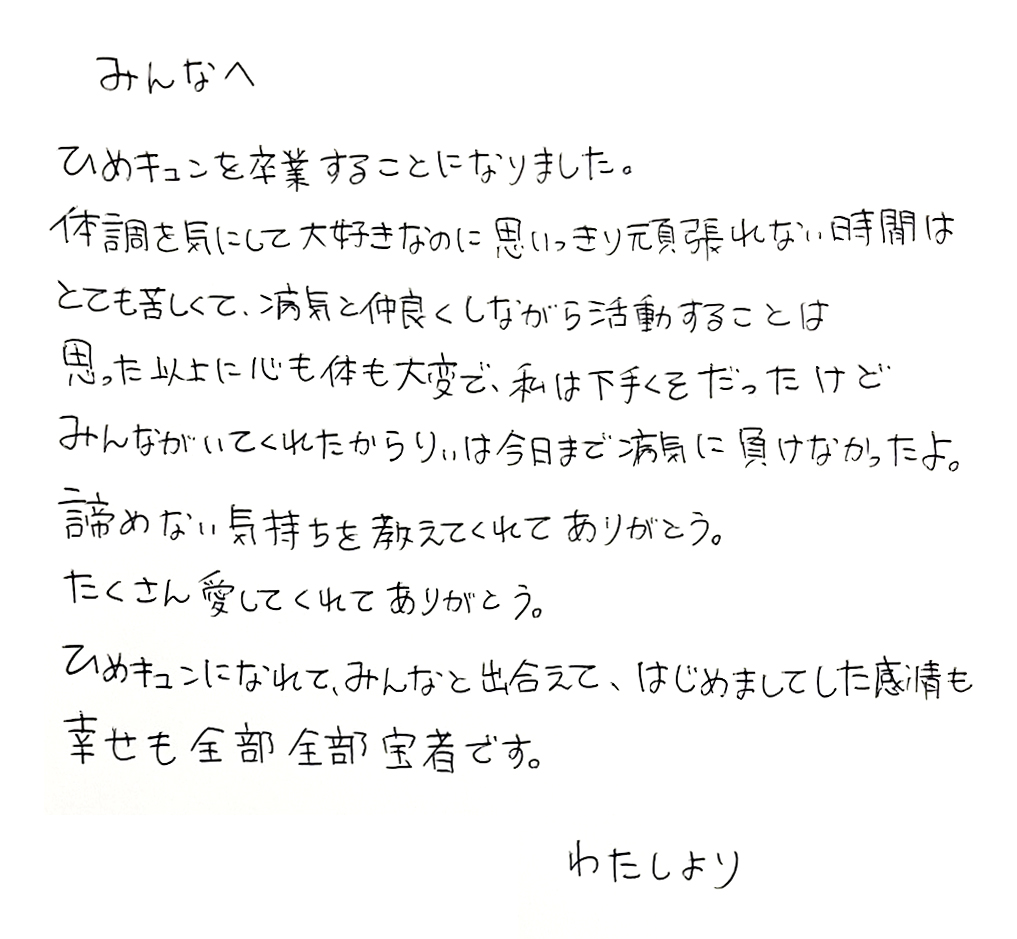 みんなへ
ひめキュンを卒業することになりました。
体調を気にして大好きなのに思いっきり頑張れない時間は
とても苦しくて、病気と仲良くしながら活動することは
思った以上に心も体も大変で、私は下手くそだったけど
みんながいてくれたからりぃは今日まで病気に負けなかったよ。
諦めない気持ちを教えてくれてありがとう。
たくさん愛してくれてありがとう。
ひめキュンになれて、みんなと出合えて、はじめましてした感情も
幸せも全部全部宝者です。
わたしより